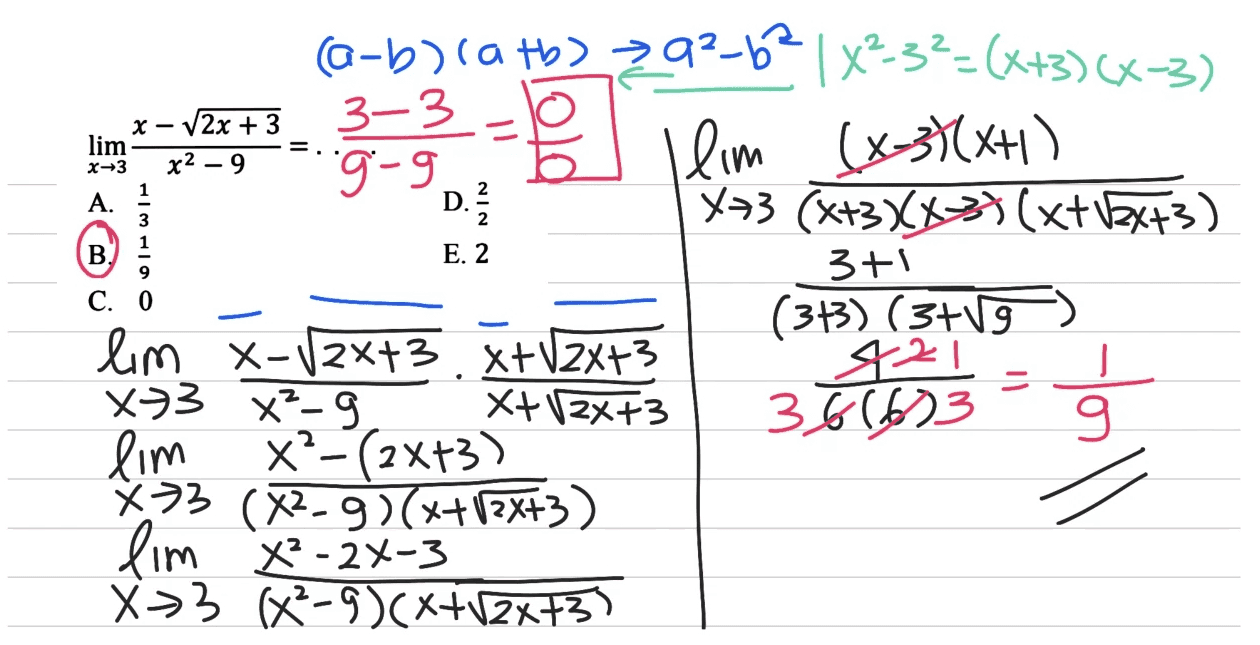 (a-b)(a+b) → a²-b² | x²-3² = (x+3)(x-3)
lim x→3 (x - √(2x + 3))/(x² - 9) = . . . (3-3)/(9-9) = 0/0
A. 1/3
D. 2/2
B. 1/9
E. 2
C. 0
lim x→3 (x-√(2x+3))/(x²-9) · (x+√(2x+3))/(x+√(2x+3))
lim x→3 (x²-(2x+3))/((x²-9)(x+√(2x+3)))
lim x→3 (x²-2x-3)/((x²-9)(x+√(2x+3)))
lim x→3 ((x-3)(x+1))/((x+3)(x-3)(x+√(2x+3)))
(3+1)/((3+3)(3+√9))
4 2 1/3 6(6)3 = 1/9